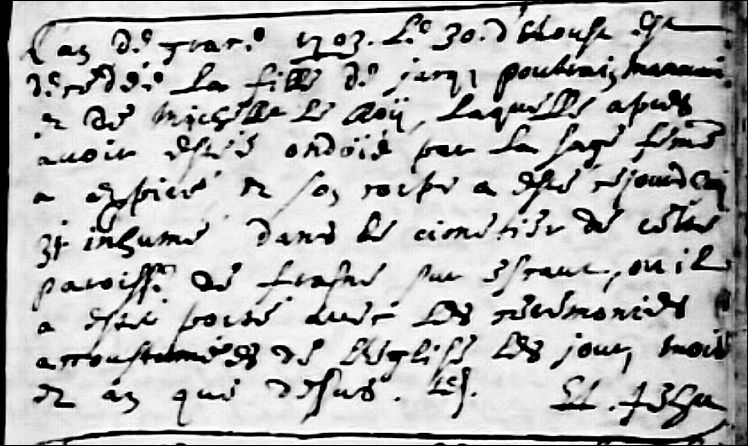 L'an de grace 1703. Le 30. d'aoust est
decedée la fille de jacq poutrain manouvri
et de Michelle le Roÿ, laquelle apres
avoir esté ondoïé par la sage feme
a expiré et son corps a esté cejourd'huÿ
31 inhumé dans le cimetier de cette
paroisse de frasne sur escaut, ou il
a esté porté avec les ceremonies
accoustumées de l'eglise les jour, mois
et an que desus.